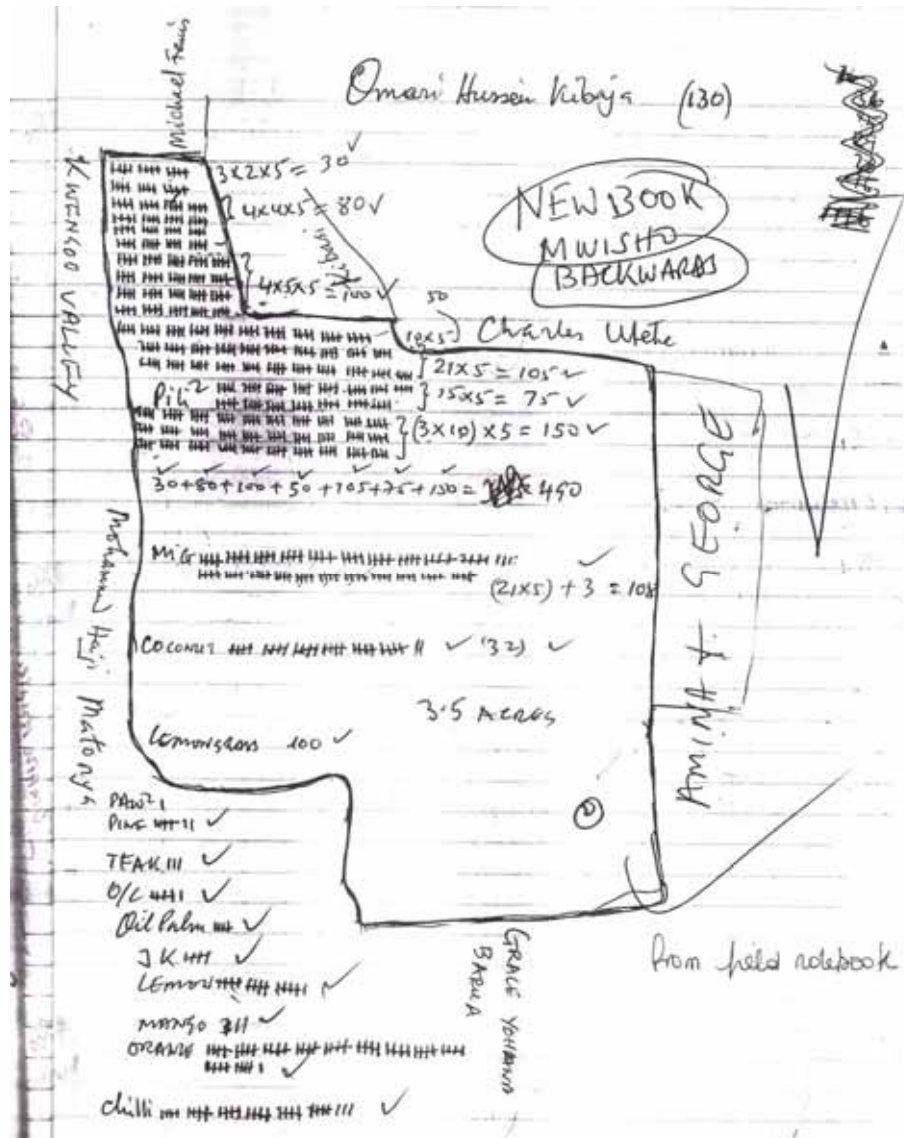 Omari Hussein Kibaja (130)
Michael
KWENGOO VALLEY
3x2x5 = 30 ✓
4x4x5 = 80 ✓
4x5x5 = 100 ✓
NEW BOOK
MWISHO
BACKWARDS
50
(10x5) Charles Utete
21x5 = 105 ✓
Pili 2
15x5 = 75 ✓
(3x10)x5 = 150 ✓
30+80+100+50+105+75+150 = 490
MIG
(21x5) + 3 = 108
COCONUT ✓ (32) ✓
3.5 ACRES
LEMONGRASS 100 ✓
Mohamed Haji Matonya
AMINA + GEORGE
2
PAW
PINE ✓
TEAK III ✓
O/L ✓
Oil Palm ✓
JK ✓
LEMON ✓
MANGO ✓
ORANGE ✓
chilli ✓
GRACE YOHANA
BARUA
from field notebook